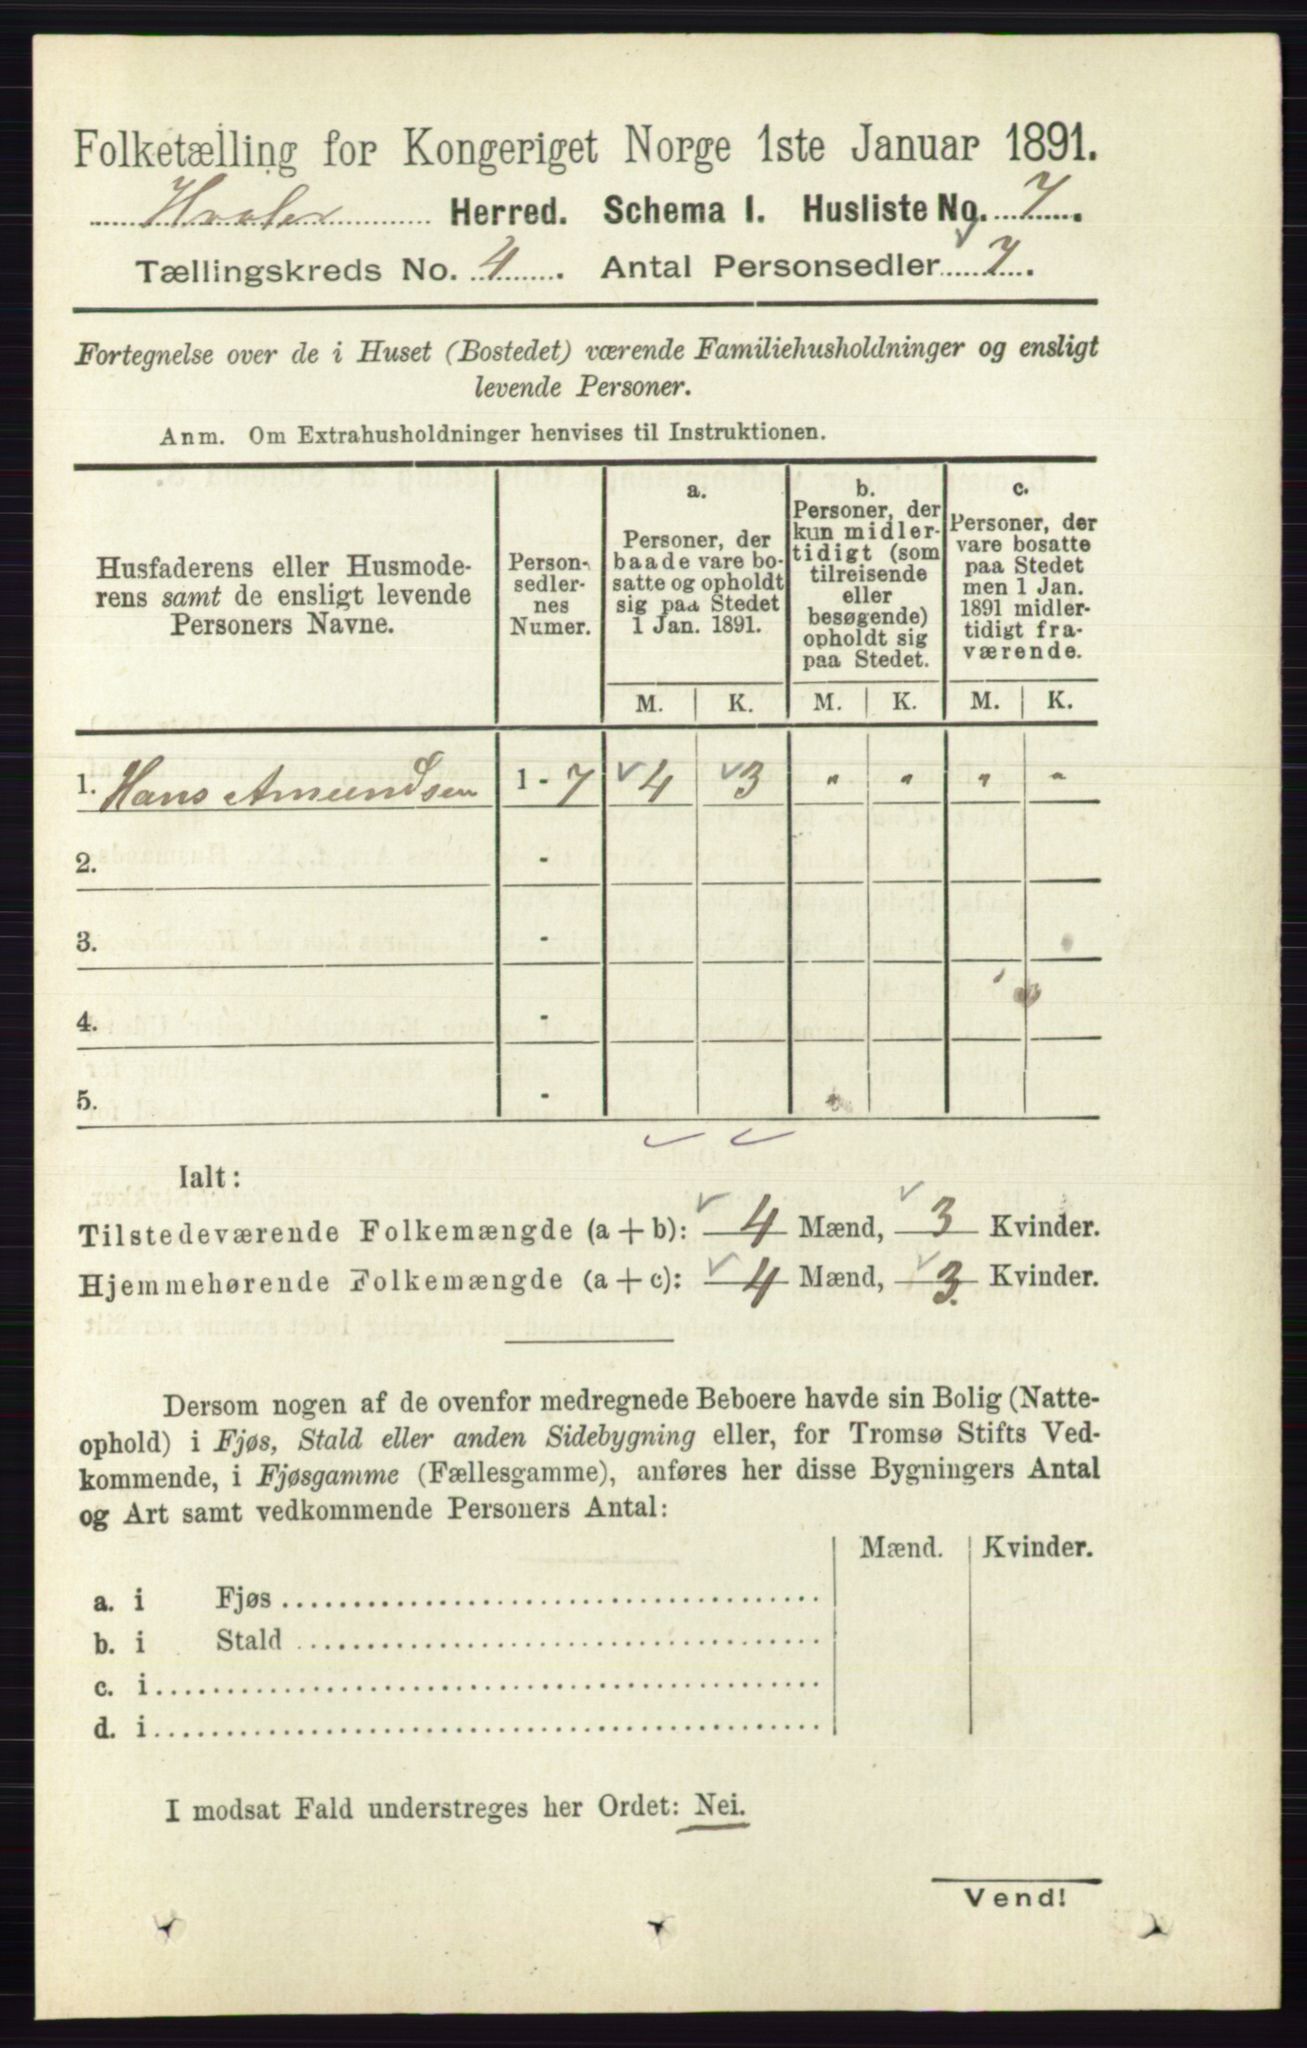 Folketælling for Kongeriget Norge 1ste Januar 1891.
Hvaler Herred. Schema I. Husliste No. 7.
Tællingskreds No. 4. Antal Personsedler 7.
Fortegnelse over de i Huset (Bostedet) værende Familiehusholdninger og ensligt
levende Personer.
Anm. Om Extrahusholdninger henvises til Instruktionen.
Husfaderens eller Husmode-
rens samt de ensligt levende
Personers Navne.
Person-
sedler-
nes
Numer.
a.
Personer, der
baade vare bo-
satte og opholdt
sig paa Stedet
1 Jan. 1891.
b.
Personer, der
kun midler-
tidigt (som
tilreisende
eller
besøgende)
opholdt sig
paa Stedet.
c.
Personer, der
vare bosatte
paa Stedet
men 1 Jan.
1891 midler-
tidigt fra-
værende.
M. K. M. K. M. K.
1. Hans Amundsen 1 - 7 4 3 " " " "
2. -
3. -
4. -
5. -
Ialt:
Tilstedeværende Folkemængde (a + b): 4 Mænd, 3 Kvinder.
Hjemmehørende Folkemængde (a + c): 4 Mænd, 3 Kvinder.
Dersom nogen af de ovenfor medregnede Beboere havde sin Bolig (Natte-
ophold) i Fjøs, Stald eller anden Sidebygning eller, for Tromsø Stifts Ved-
kommende, i Fjøsgamme (Fællesgamme), anføres her disse Bygningers Antal
og Art samt vedkommende Personers Antal:
Mænd. Kvinder.
a. i Fjøs
b. i Stald
c. i
d. i
I modsat Fald understreges her Ordet: Nei.
Vend!